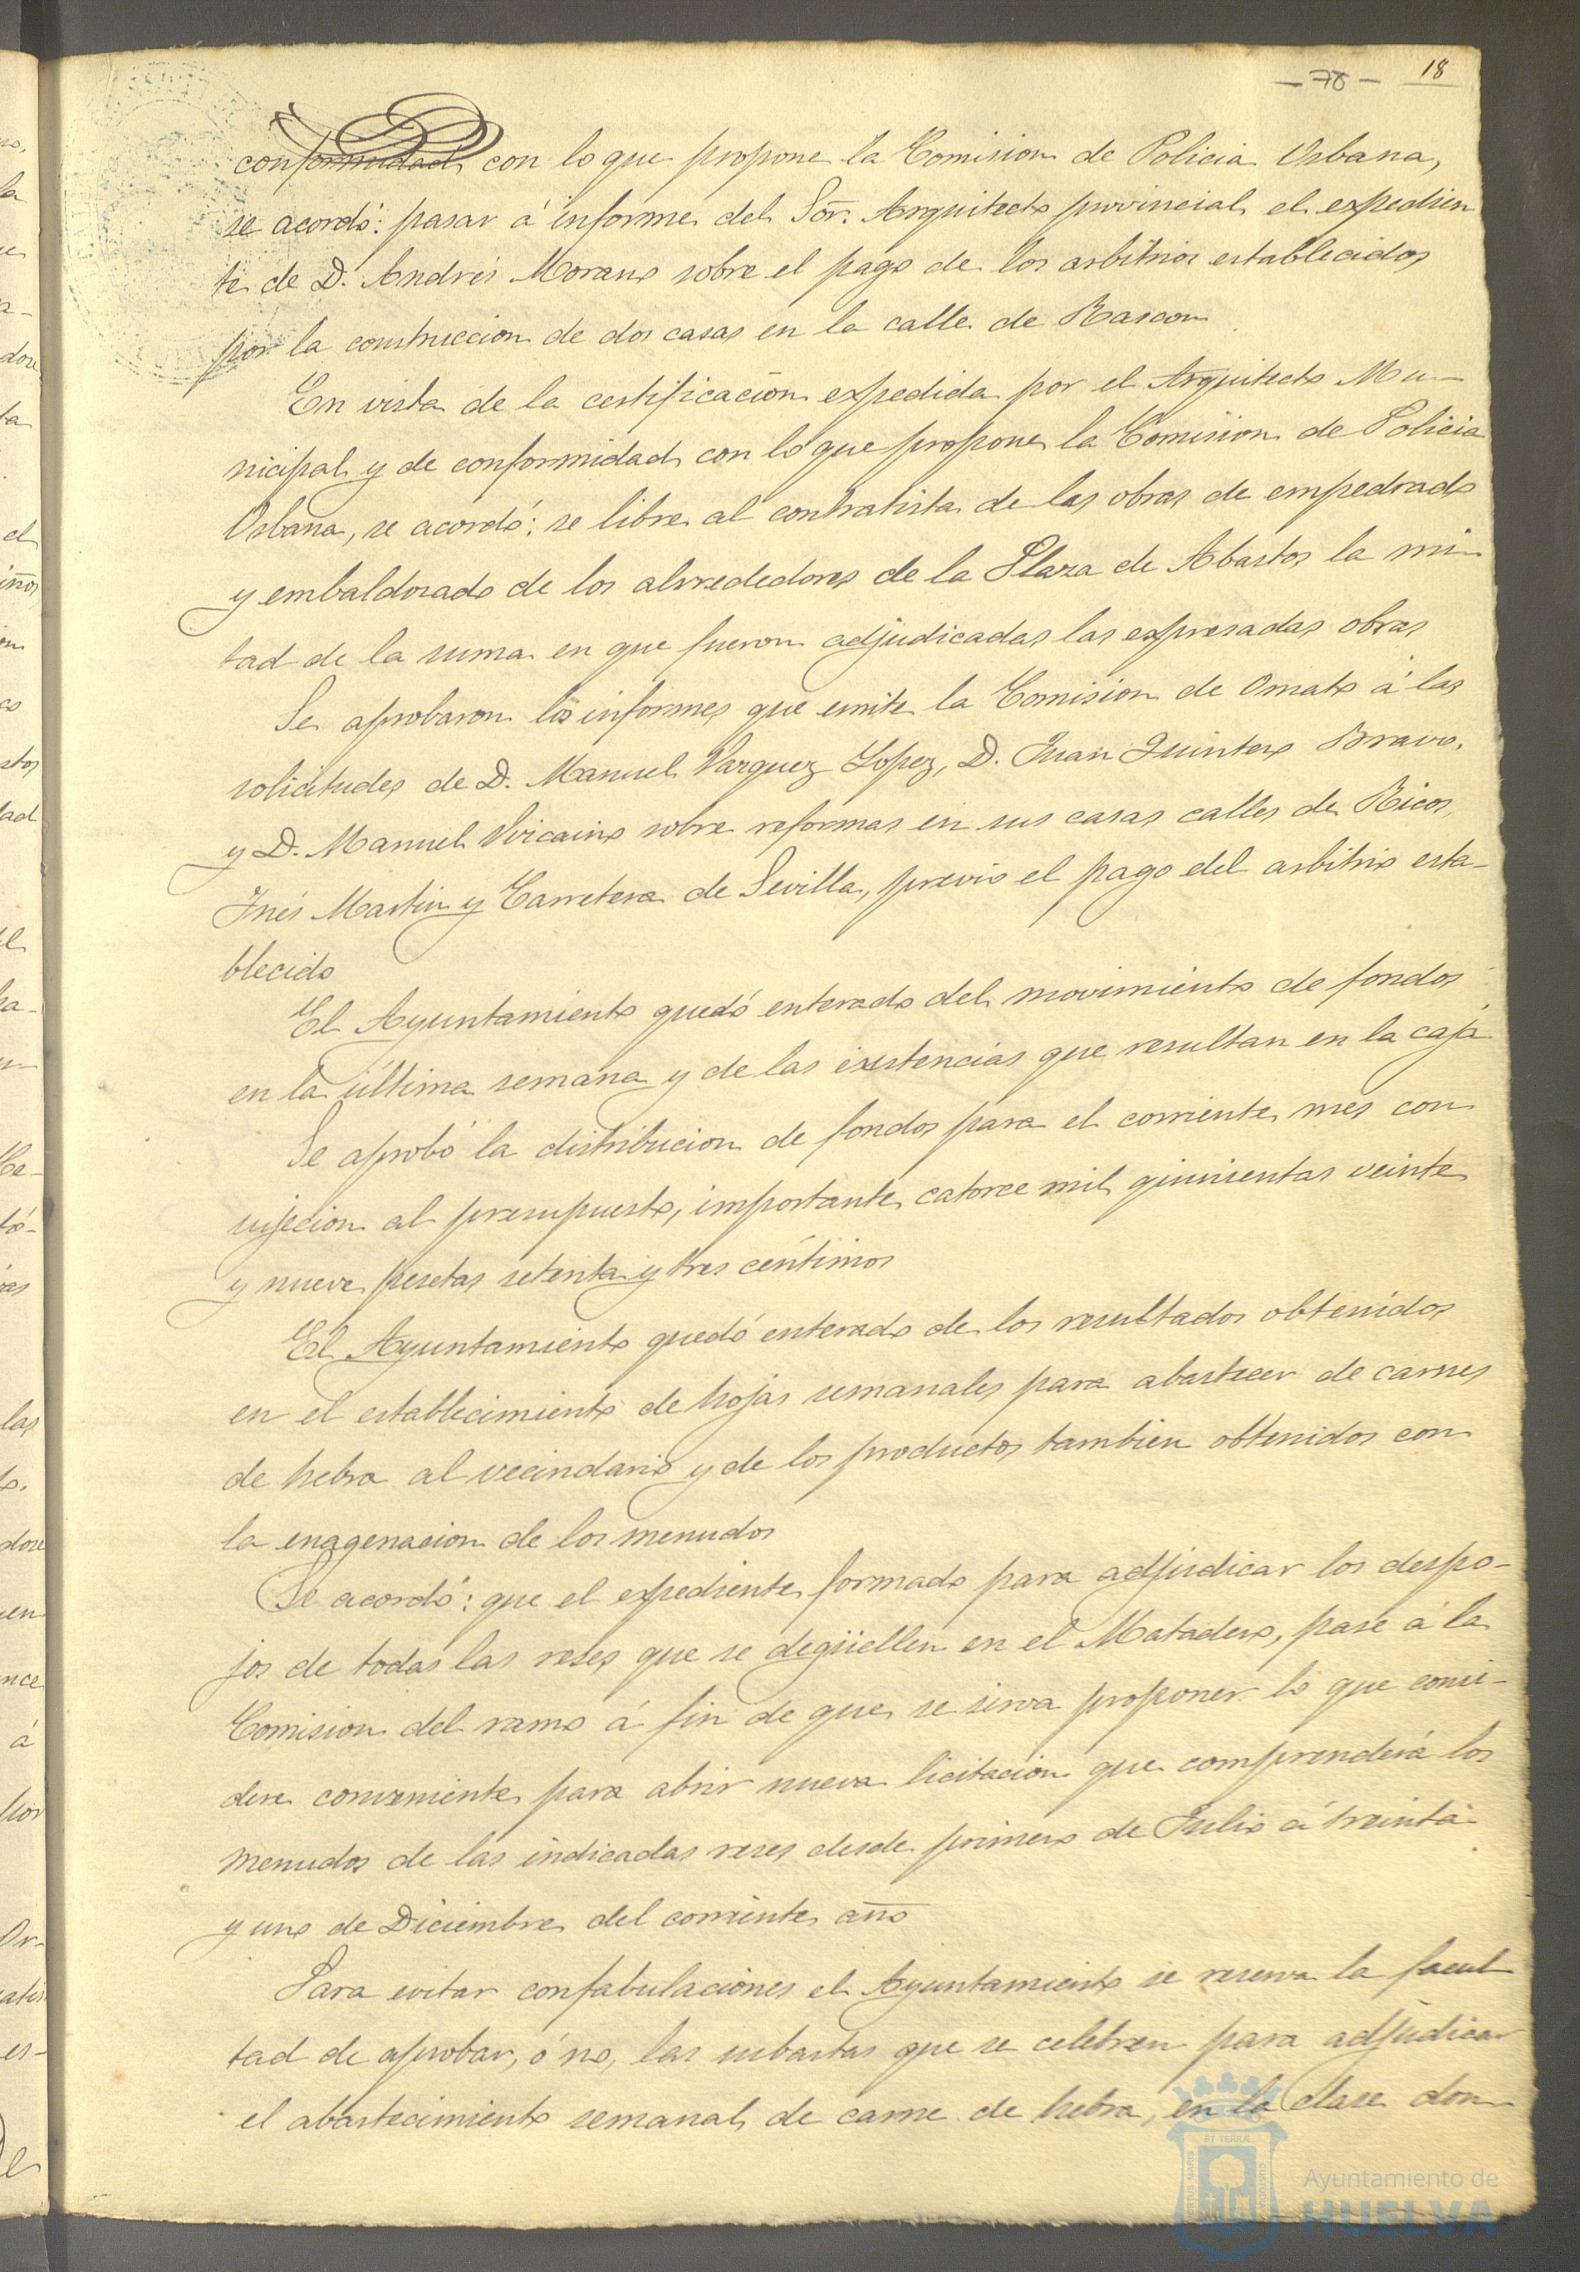 - 78 - 18
conformidad con lo que propone la Comision de Policia Urbana,
se acordó: pasar á informe del Sõr. Arquitecto provincial el expedien
te de D. Andrés Morano sobre el pago de los arbitrios establecidos
por la construccion de dos casas en la calle de Rascon
En vista de la certificacion expedida por el Arquitecto Mu-
nicipal y de conformidad con lo que propone la Comision de Policia
Urbana, se acordó: se libre al contratista de las obras de empedrado
y embaldosado de los alrrededores de la Plaza de Abastos la mi-
tad de la suma en que fueron adjudicadas las expresadas obras
Se aprobaron los informes que emite la Comision de Ornato á las
solicitudes de D. Manuel Vazquez Lopez, D. Juan Quintero Bravo,
y D. Manuel Vizcaino sobre reformas en sus casas calles de Ricos,
Inés Martin y Carretera de Sevilla, previo el pago del arbitrio esta-
blecido
El Ayuntamiento quedó enterado del movimiento de fondos
en la última semana y de las existencias que resultan en la caja
Se aprobó la distribucion de fondos para el corriente mes con
sujecion al presupuesto, importante catorce mil quinientas veinte
y nueve pesetas setenta y tres céntimos
El Ayuntamiento quedó enterado de los resultados obtenidos
en el establecimiento de hojas semanales para abastecer de carnes
de hebra al vecindario y de los productos tambien obtenidos con
la enagenacion de los menudos
Se acordó: que el expediente formado para adjudicar los despo-
jos de todas las reses que se degüellen en el Matadero, pase á la
Comision del ramo á fin de que se sirva proponer lo que consi-
dere conveniente para abrir nueva licitacion que comprenderá los
menudos de las indicadas reses desde primero de Julio á treinta
y uno de Diciembre del corriente año
Para evitar confabulaciones el Ayuntamiento se reserva la facul
tad de aprobar, ó no, las subastas que se celebren para adjudicar
el abastecimiento semanal de carne de hebra, en la clase don
Ayuntamiento de
HUELVA